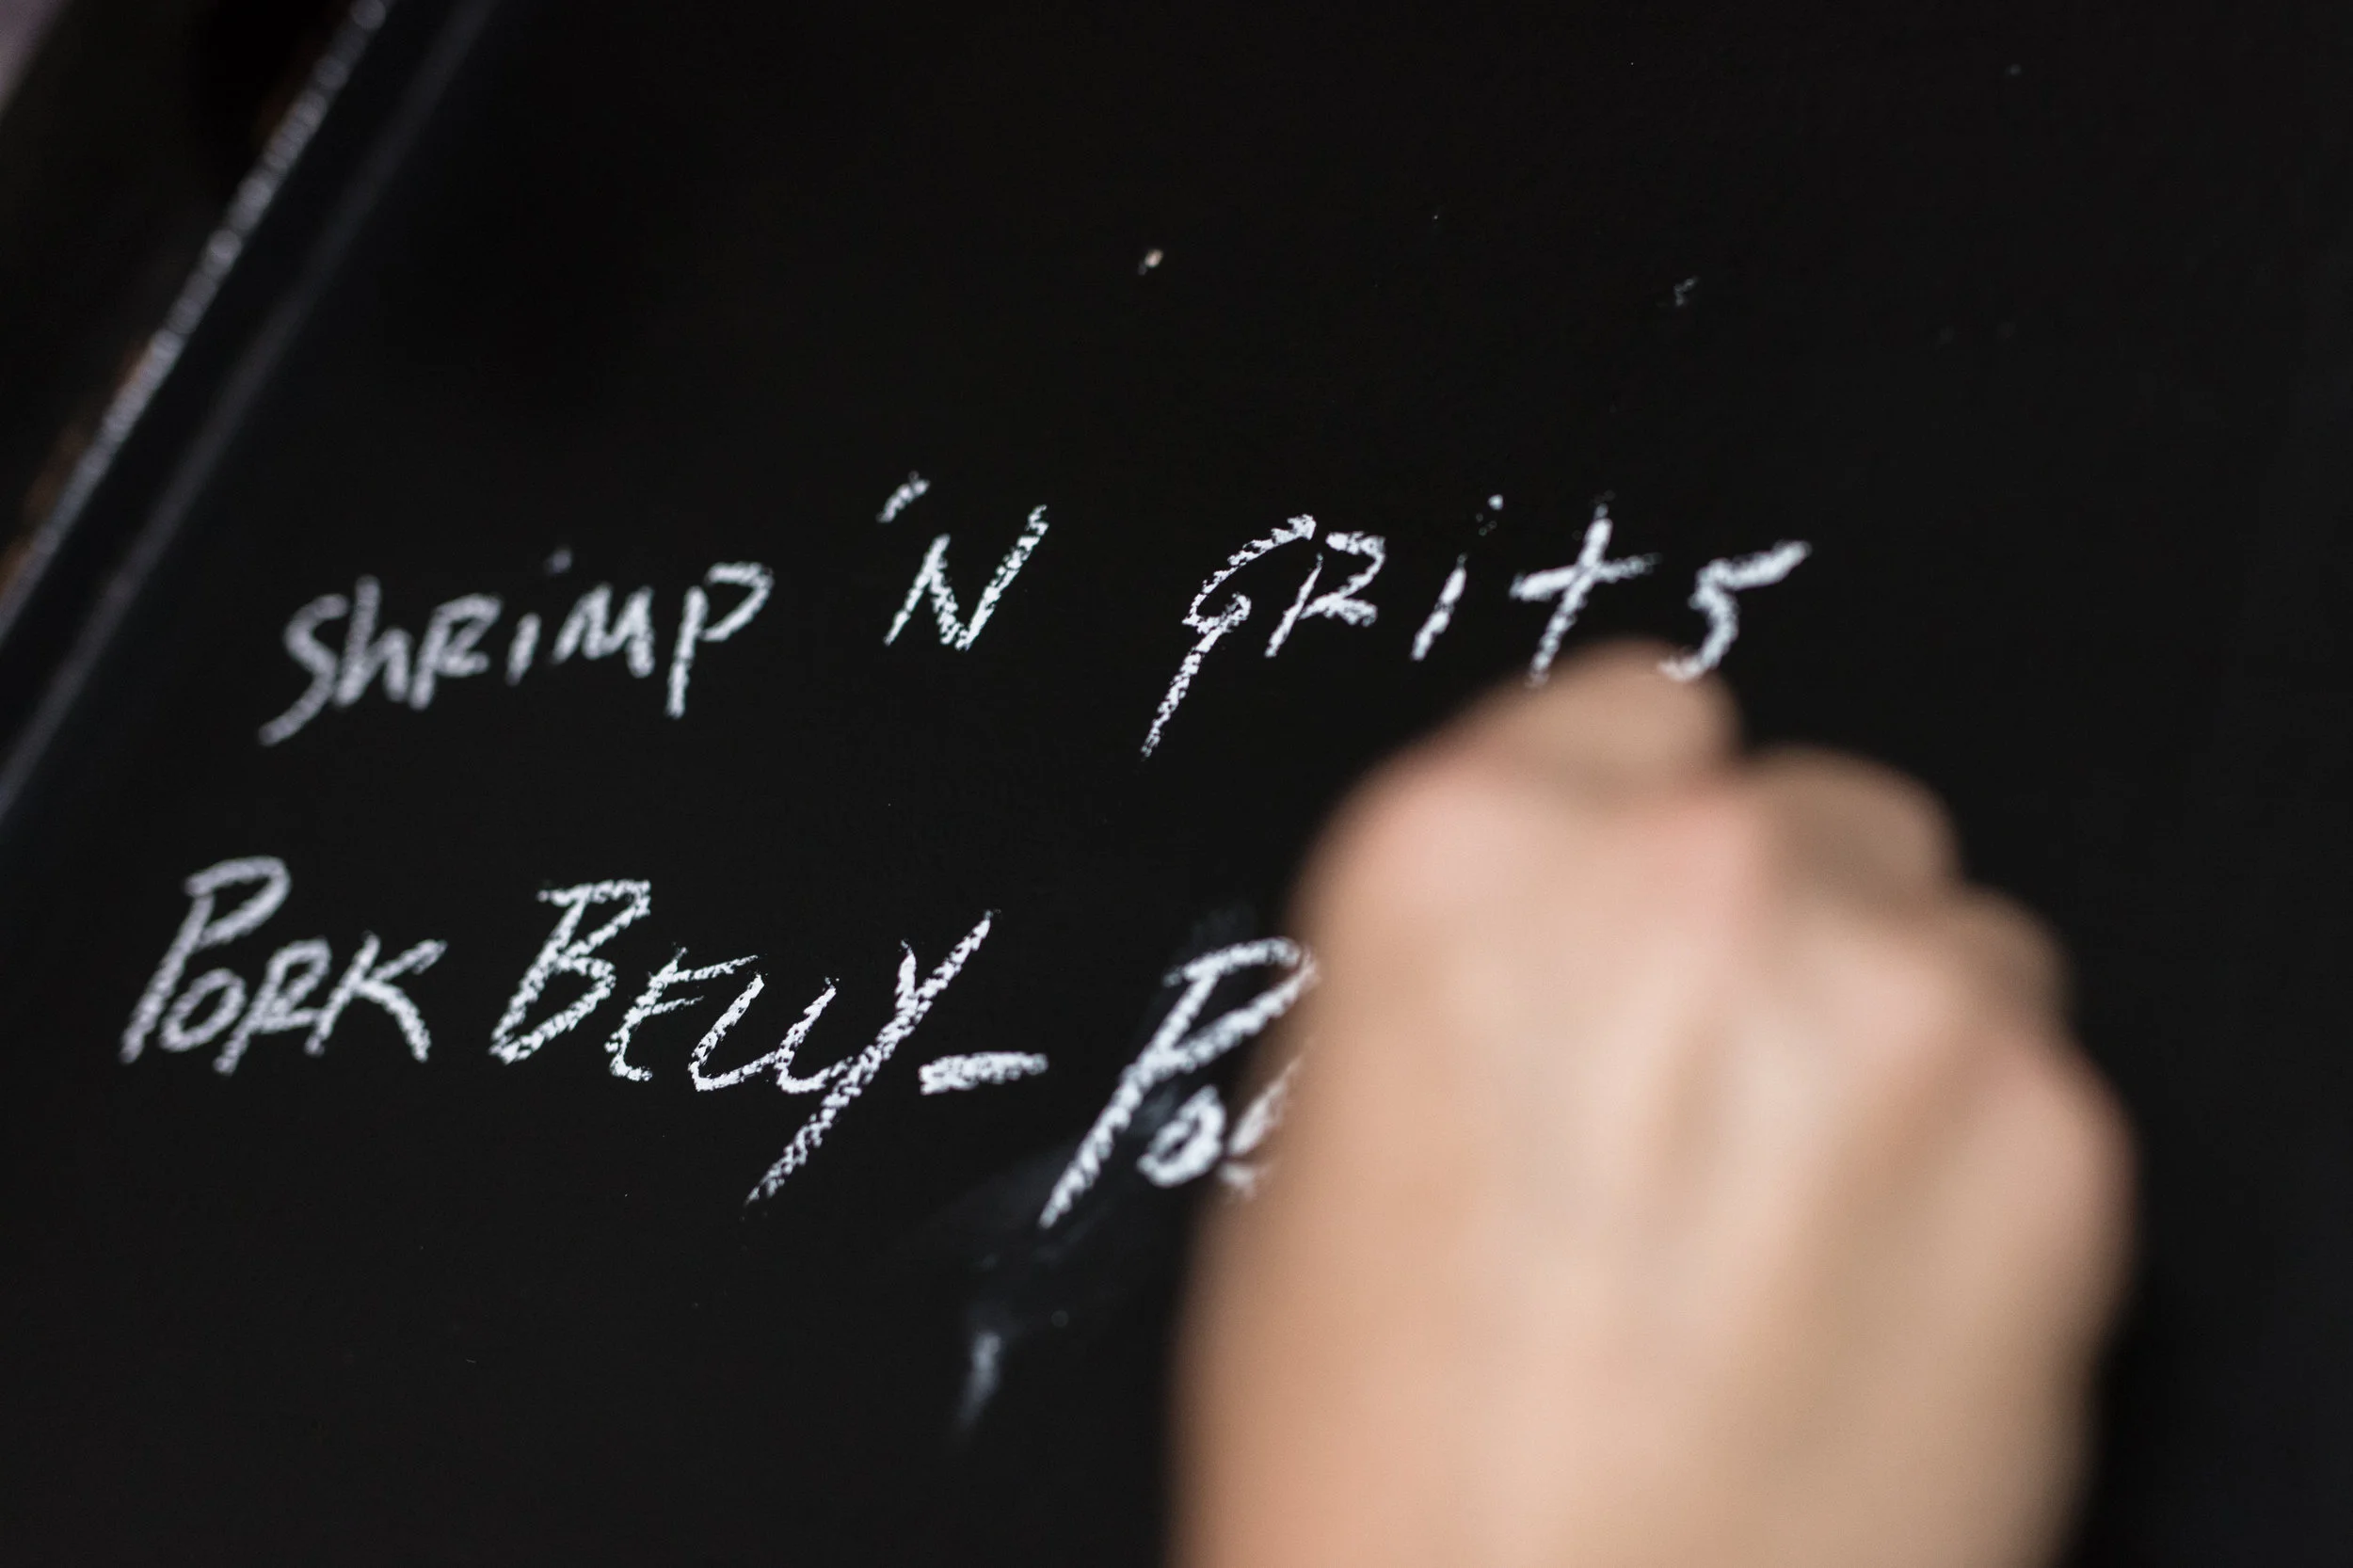 ShRimp 'N gRits
PORK BELLY -